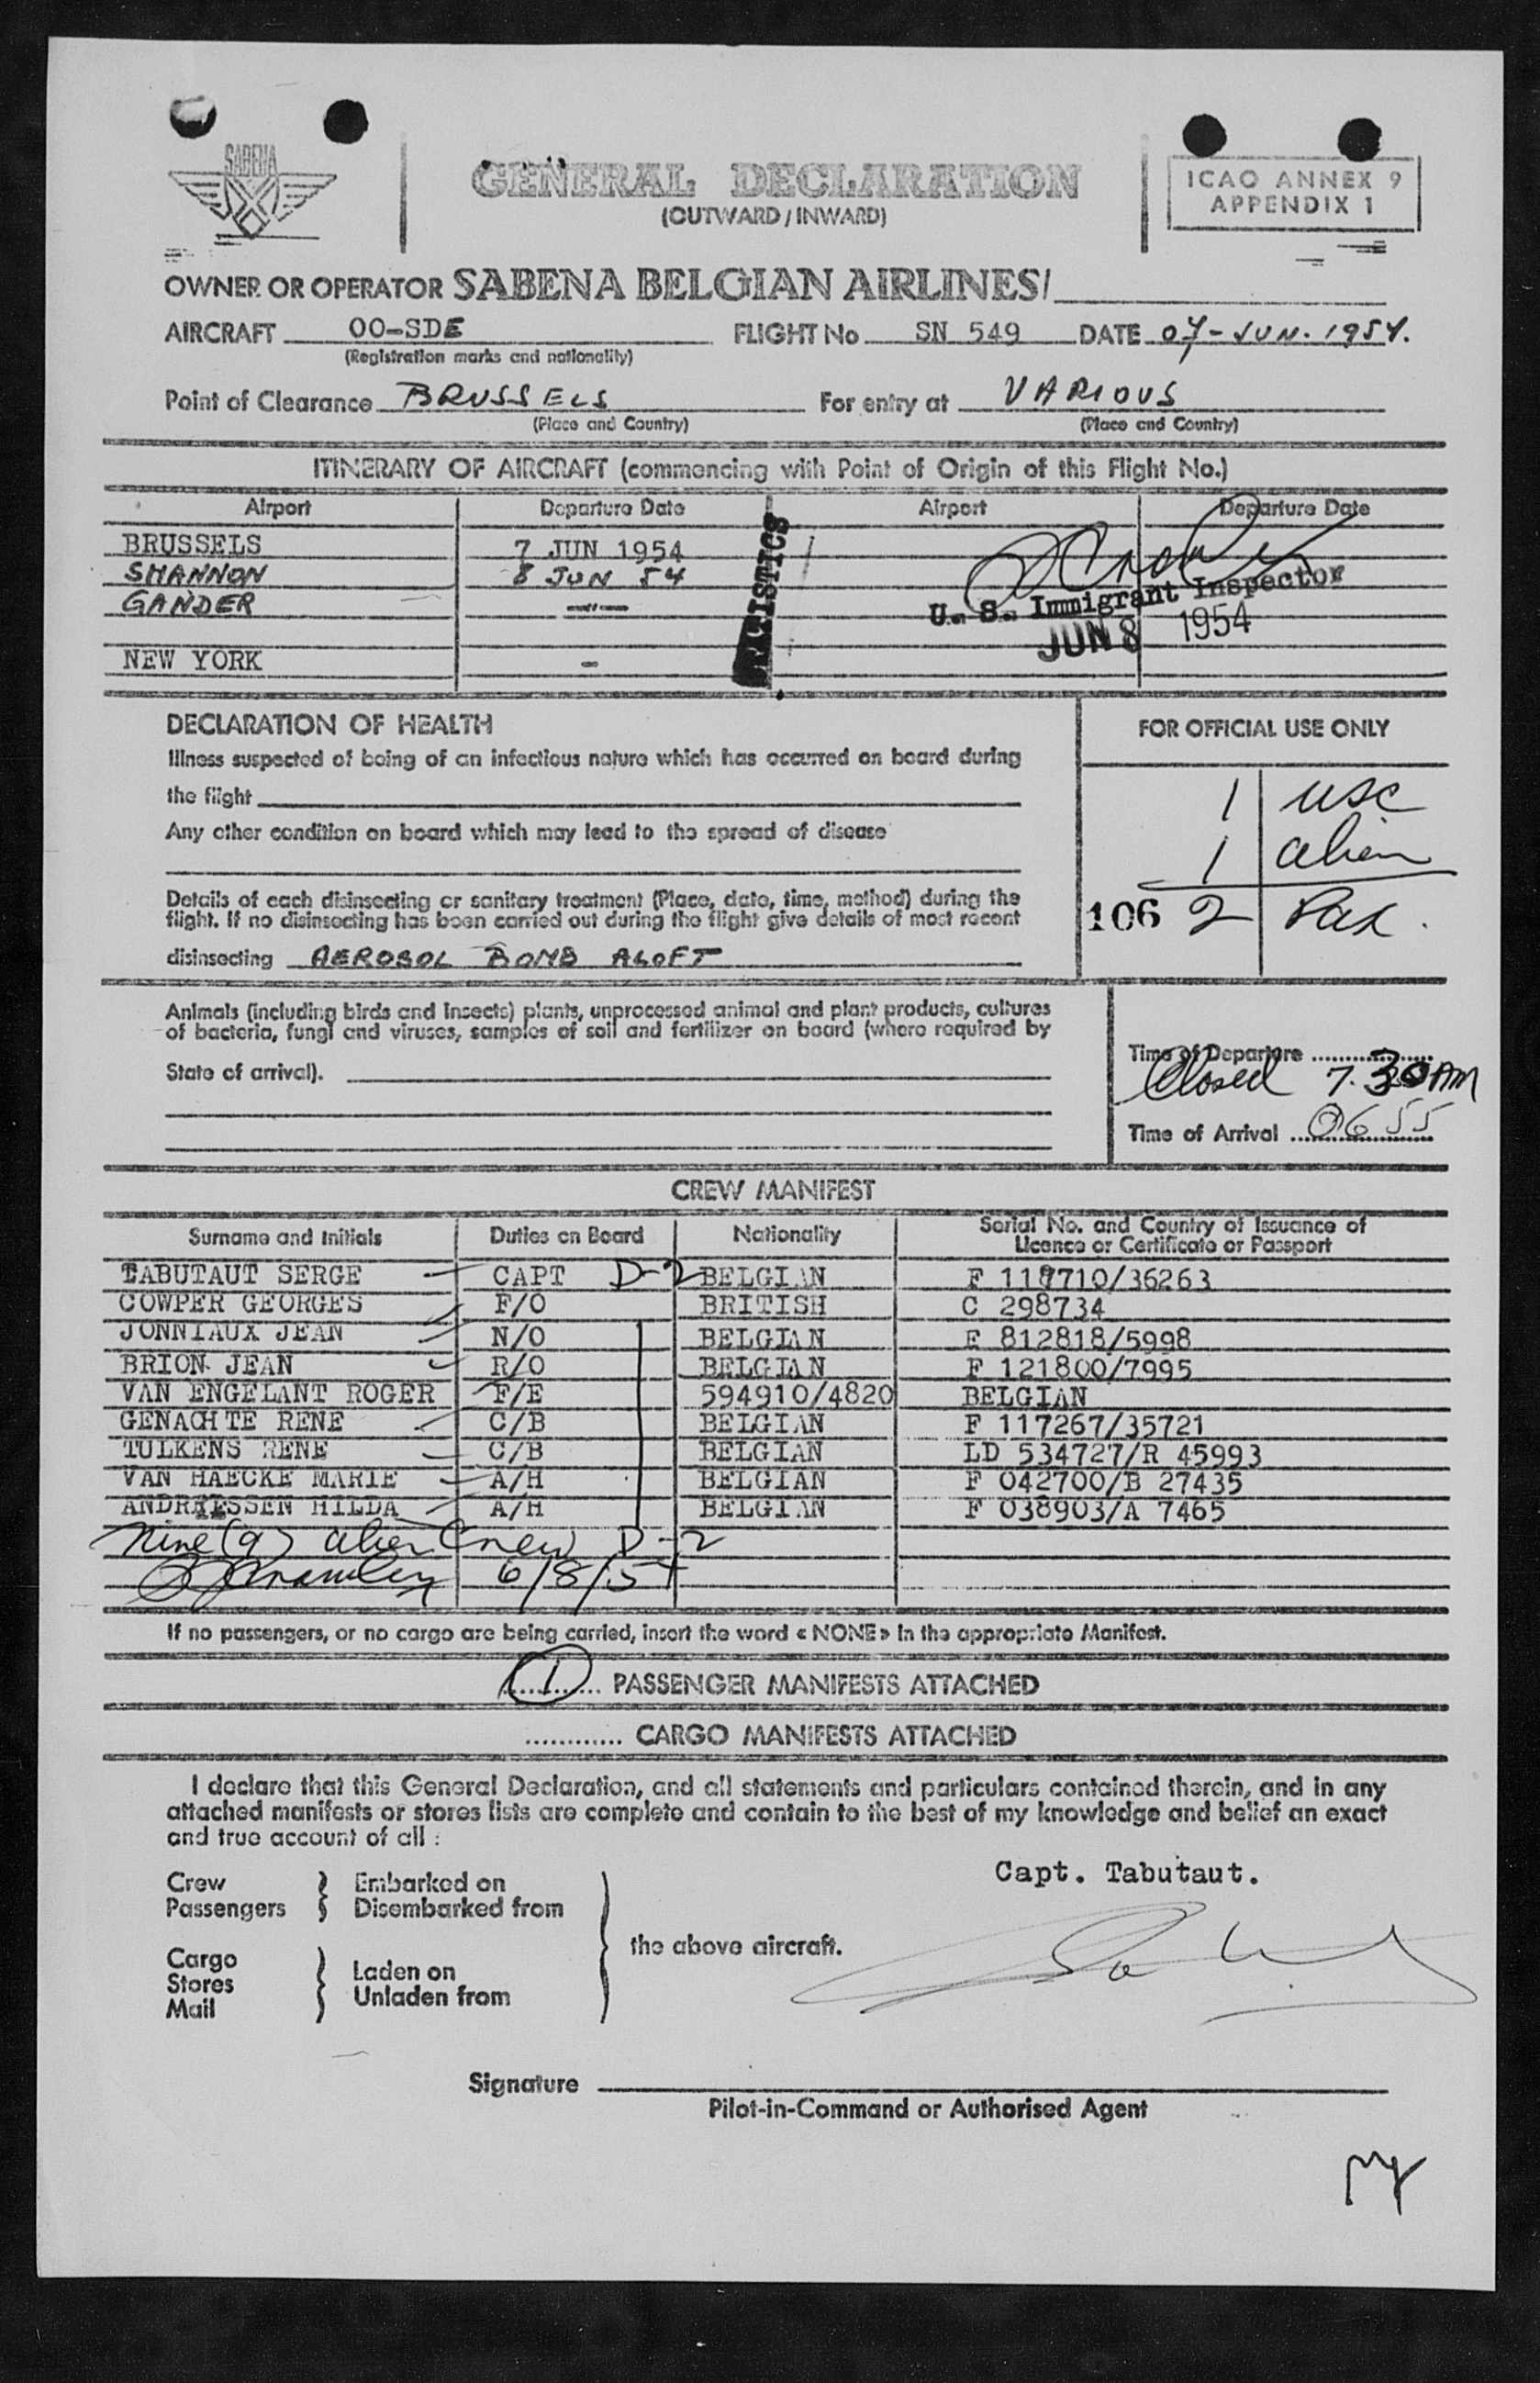 SABENA
GENERAL DECLARATION
(OUTWARD / INWARD)
ICAO ANNEX 9
APPENDIX 1
OWNER OR OPERATOR SABENA BELGIAN AIRLINES/
AIRCRAFT OO-SDE FLIGHT No SN 549 DATE 07-JUN. 1954.
(Registration marks and nationality)
Point of Clearance BRUSSELS For entry at VARIOUS
(Place and Country) (Place and Country)
ITINERARY OF AIRCRAFT (commencing with Point of Origin of this Flight No.)
Airport Departure Date Airport Departure Date
BRUSSELS 7 JUN 1954
SHANNON 8 JUN 54
GANDER -"-
NEW YORK -
STATISTICS
U. S. Immigrant Inspector
JUN 8 1954
DECLARATION OF HEALTH
Illness suspected of being of an infectious nature which has occurred on board during
the flight
Any other condition on board which may lead to the spread of disease
Details of each disinsecting or sanitary treatment (Place, date, time, method) during the
flight. If no disinsecting has been carried out during the flight give details of most recent
disinsecting AEROSOL BOMB ALOFT
FOR OFFICIAL USE ONLY
1 USC
1 alien
106 2 Pax.
Animals (including birds and insects) plants, unprocessed animal and plant products, cultures
of bacteria, fungi and viruses, samples of soil and fertilizer on board (where required by
State of arrival).
Time of Departure
Closed 7.30 AM
Time of Arrival 0655
CREW MANIFEST
Surname and Initials Duties on Board Nationality Serial No. and Country of Issuance of
Licence or Certificate or Passport
TABUTAUT SERGE CAPT D-2 BELGIAN F 118710/36263
COWPER GEORGES F/O BRITISH C 298734
JONNIAUX JEAN N/O BELGIAN E 812818/5998
BRION JEAN R/O BELGIAN F 121800/7995
VAN ENGELANT ROGER F/E 594910/4820 BELGIAN
GENACHTE RENE C/B BELGIAN F 117267/35721
TULKENS RENE C/B BELGIAN LD 534727/R 45993
VAN HAECKE MARIE A/H BELGIAN F 042700/B 27435
ANDRIESSEN HILDA A/H BELGIAN F 038903/A 7465
Nine (9) alien Crew D-2
6/8/54
If no passengers, or no cargo are being carried, insert the word « NONE » in the appropriate Manifest.
1 PASSENGER MANIFESTS ATTACHED
............ CARGO MANIFESTS ATTACHED
I declare that this General Declaration, and all statements and particulars contained therein, and in any
attached manifests or stores lists are complete and contain to the best of my knowledge and belief an exact
and true account of all :
Capt. Tabutaut.
Crew Embarked on
Passengers Disembarked from
the above aircraft.
Cargo
Stores Laden on
Mail Unladen from
Signature
Pilot-in-Command or Authorised Agent